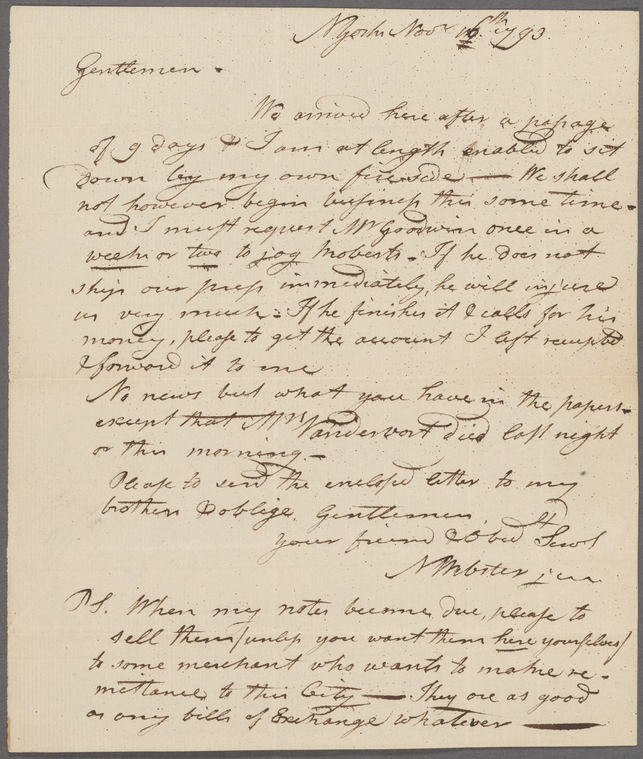 N York Novr 16th 1793
Gentlemen.
We arrived here after a passage
of 9 days & I am at length enabled to sit
down by my own fire side — We shall
not however begin business this some time -
and I must request Mr Goodwin once in a
week or two to jog - If he does not
ship our press immediately, he will injure
us very much: If he finishes it & calls for his
money, please to get the account I left receipted
& forward it to me
No news but what you have in the papers -
except that Mrs Vandervort died last night
or this morning. -
Please to send the enclosed letter to my
brother & oblige, Gentlemen,
your friend & Obed Servt
N Webster jun
PS. When my notes become due, please to
sell them (unless you want them here yourselves)
to some merchant who wants to make re-
mittances to this City — They are as good
as any bills of Exchange whatever —